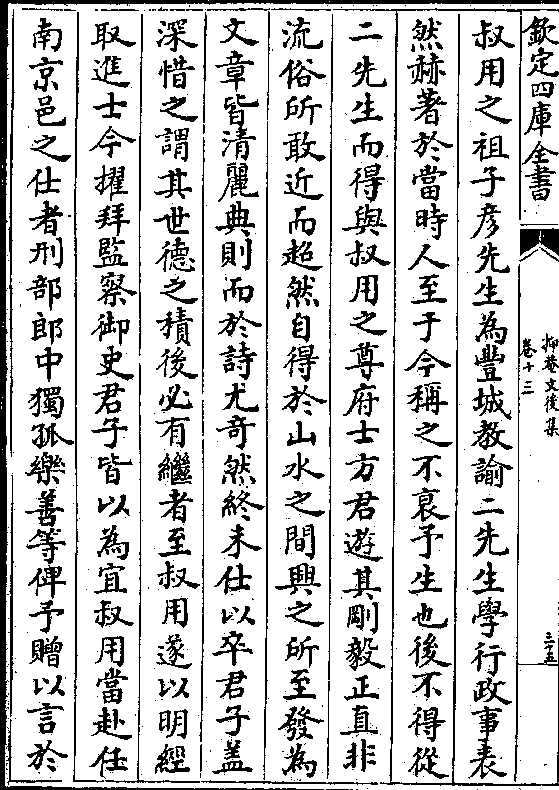 欽定四庫全書
抑菴文後集
卷十三
三十五
叔用之祖子彦先生為豐城教諭二先生學行政事表
然赫著於當時人至于今稱之不衰予生也後不得從
二先生而得與叔用之尊府士方君遊其剛毅正直非
流俗所敢近而超然自得於山水之間興之所至發為
文章皆清麗典則而於詩尤奇然終未仕以卒君子盖
深惜之謂其世德之積後必有繼者至叔用遂以明經
取進士今擢拜監察御史君子皆以為宜叔用當赴任
南京邑之仕者刑部郎中獨孤樂善等俾予贈以言於